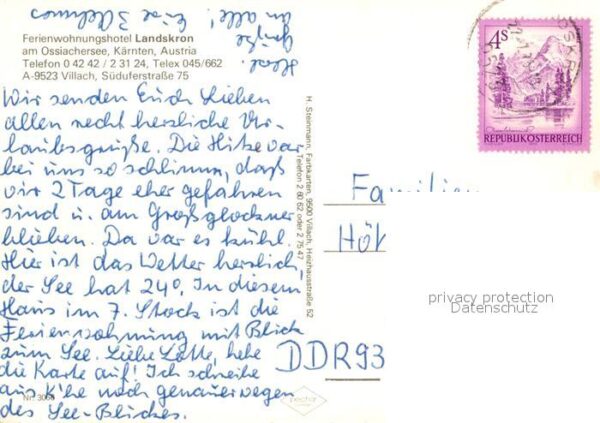 Ferienwohnungshotel Landskron
am Ossiachersee, Kärnten, Austria
Telefon 0 42 42 / 2 31 24, Telex 045/662
A-9523 Villach, Süduferstraße 75
Wir senden Euch Lieben
allen recht herzliche Ur-
laubsgrüße. Die Hitze war
bei uns so schlimm, daß
wir 2 Tage eher gefahren
sind u. am Großglockner
blieben. Da war es kühl.
Hier ist das Wetter herrlich,
der See hat 24°. In diesem
Haus im 7. Stock ist die
Ferienwohnung mit Blick
zum See. Liebe Lotte, hebe
die Karte auf! Ich schreibe
aus K'he noch genauer wegen
des See-Blickes.
Herzl.
Grüße
an alle!
Nr. 300
H. Steinmann, Farbkarten, 9500 Villach, Heizhausstraße 52
Telefon 2 60 62 oder 2 75 47
4S
REPUBLIK ÖSTERREICH
Familie
Höt
DDR 93
privacy protection
Datenschutz